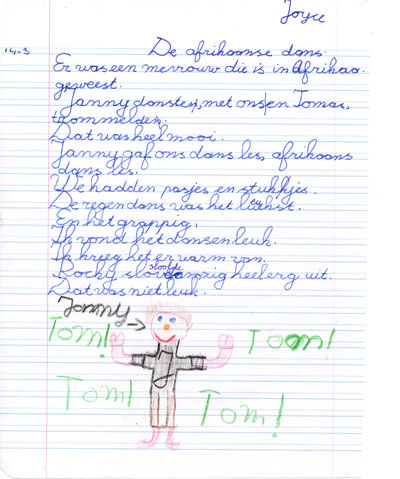 Joyce
14-3
De afrikaanse dans.
Er was een mevrouw die is in Afrikaa.
geweest.
Janny danste, met ons en Tomas,
trommelden.
Dat was heel mooi.
Janny gaf ons dans les, afrikaans
dans les.
We hadden pasjes en stukkjes.
De regendans was het leukst.
En het grappig.
Ik vond het dansen leuk.
Ik kreeg het er warm van.
Rocky sloofde zig heel erg uit.
Dat was niet leuk.
Janny
Tom!
Tom!
Tom!
Tom!